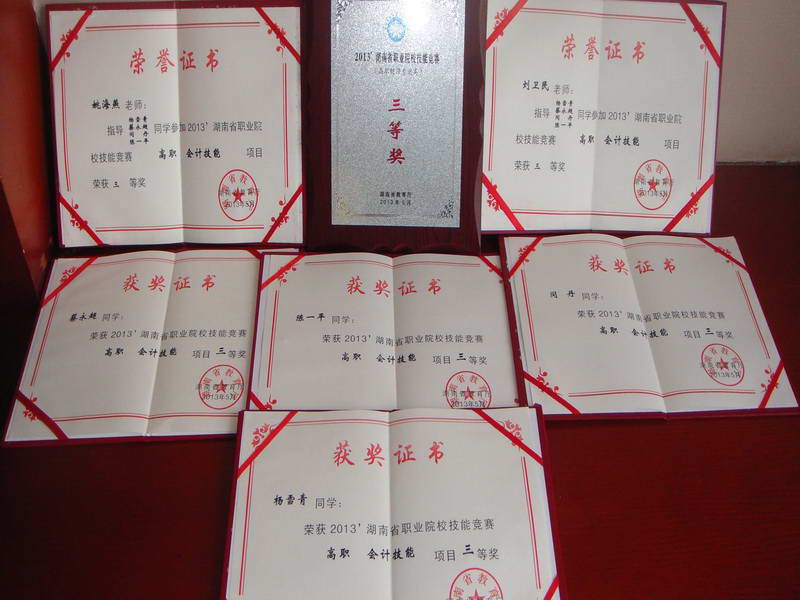 荣誉证书
姚海燕 老师:
指导 杨雪青 蔡永超 闫丹 陈一平 同学参加2013'湖南省职业院
校技能竞赛 高职 会计技能 项目
荣获 三 等奖
2013年5月
2013'湖南省职业院校技能竞赛
三等奖
湖南省教育厅
2013年5月
荣誉证书
刘卫民 老师:
指导 杨雪青 蔡永超 闫丹 陈一平 同学参加2013'湖南省职业院
校技能竞赛 高职 会计技能 项目
荣获 三 等奖
2013年5月
获奖证书
蔡永超 同学:
荣获2013'湖南省职业院校技能竞赛
高职 会计技能 项目 三 等奖
湖南省教育厅
2013年5月
获奖证书
陈一平 同学:
荣获2013'湖南省职业院校技能竞赛
高职 会计技能 项目 三 等奖
湖南省教育厅
2013年5月
获奖证书
闫丹 同学:
荣获2013'湖南省职业院校技能竞赛
高职 会计技能 项目 三 等奖
湖南省教育厅
2013年5月
获奖证书
杨雪青 同学:
荣获2013'湖南省职业院校技能竞赛
高职 会计技能 项目 三 等奖